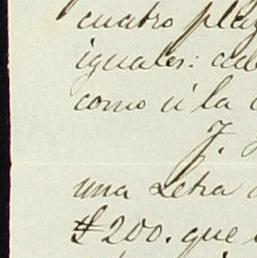 cuatro pla
iguales: ca
como ú la
J.
una Letra
$200. que